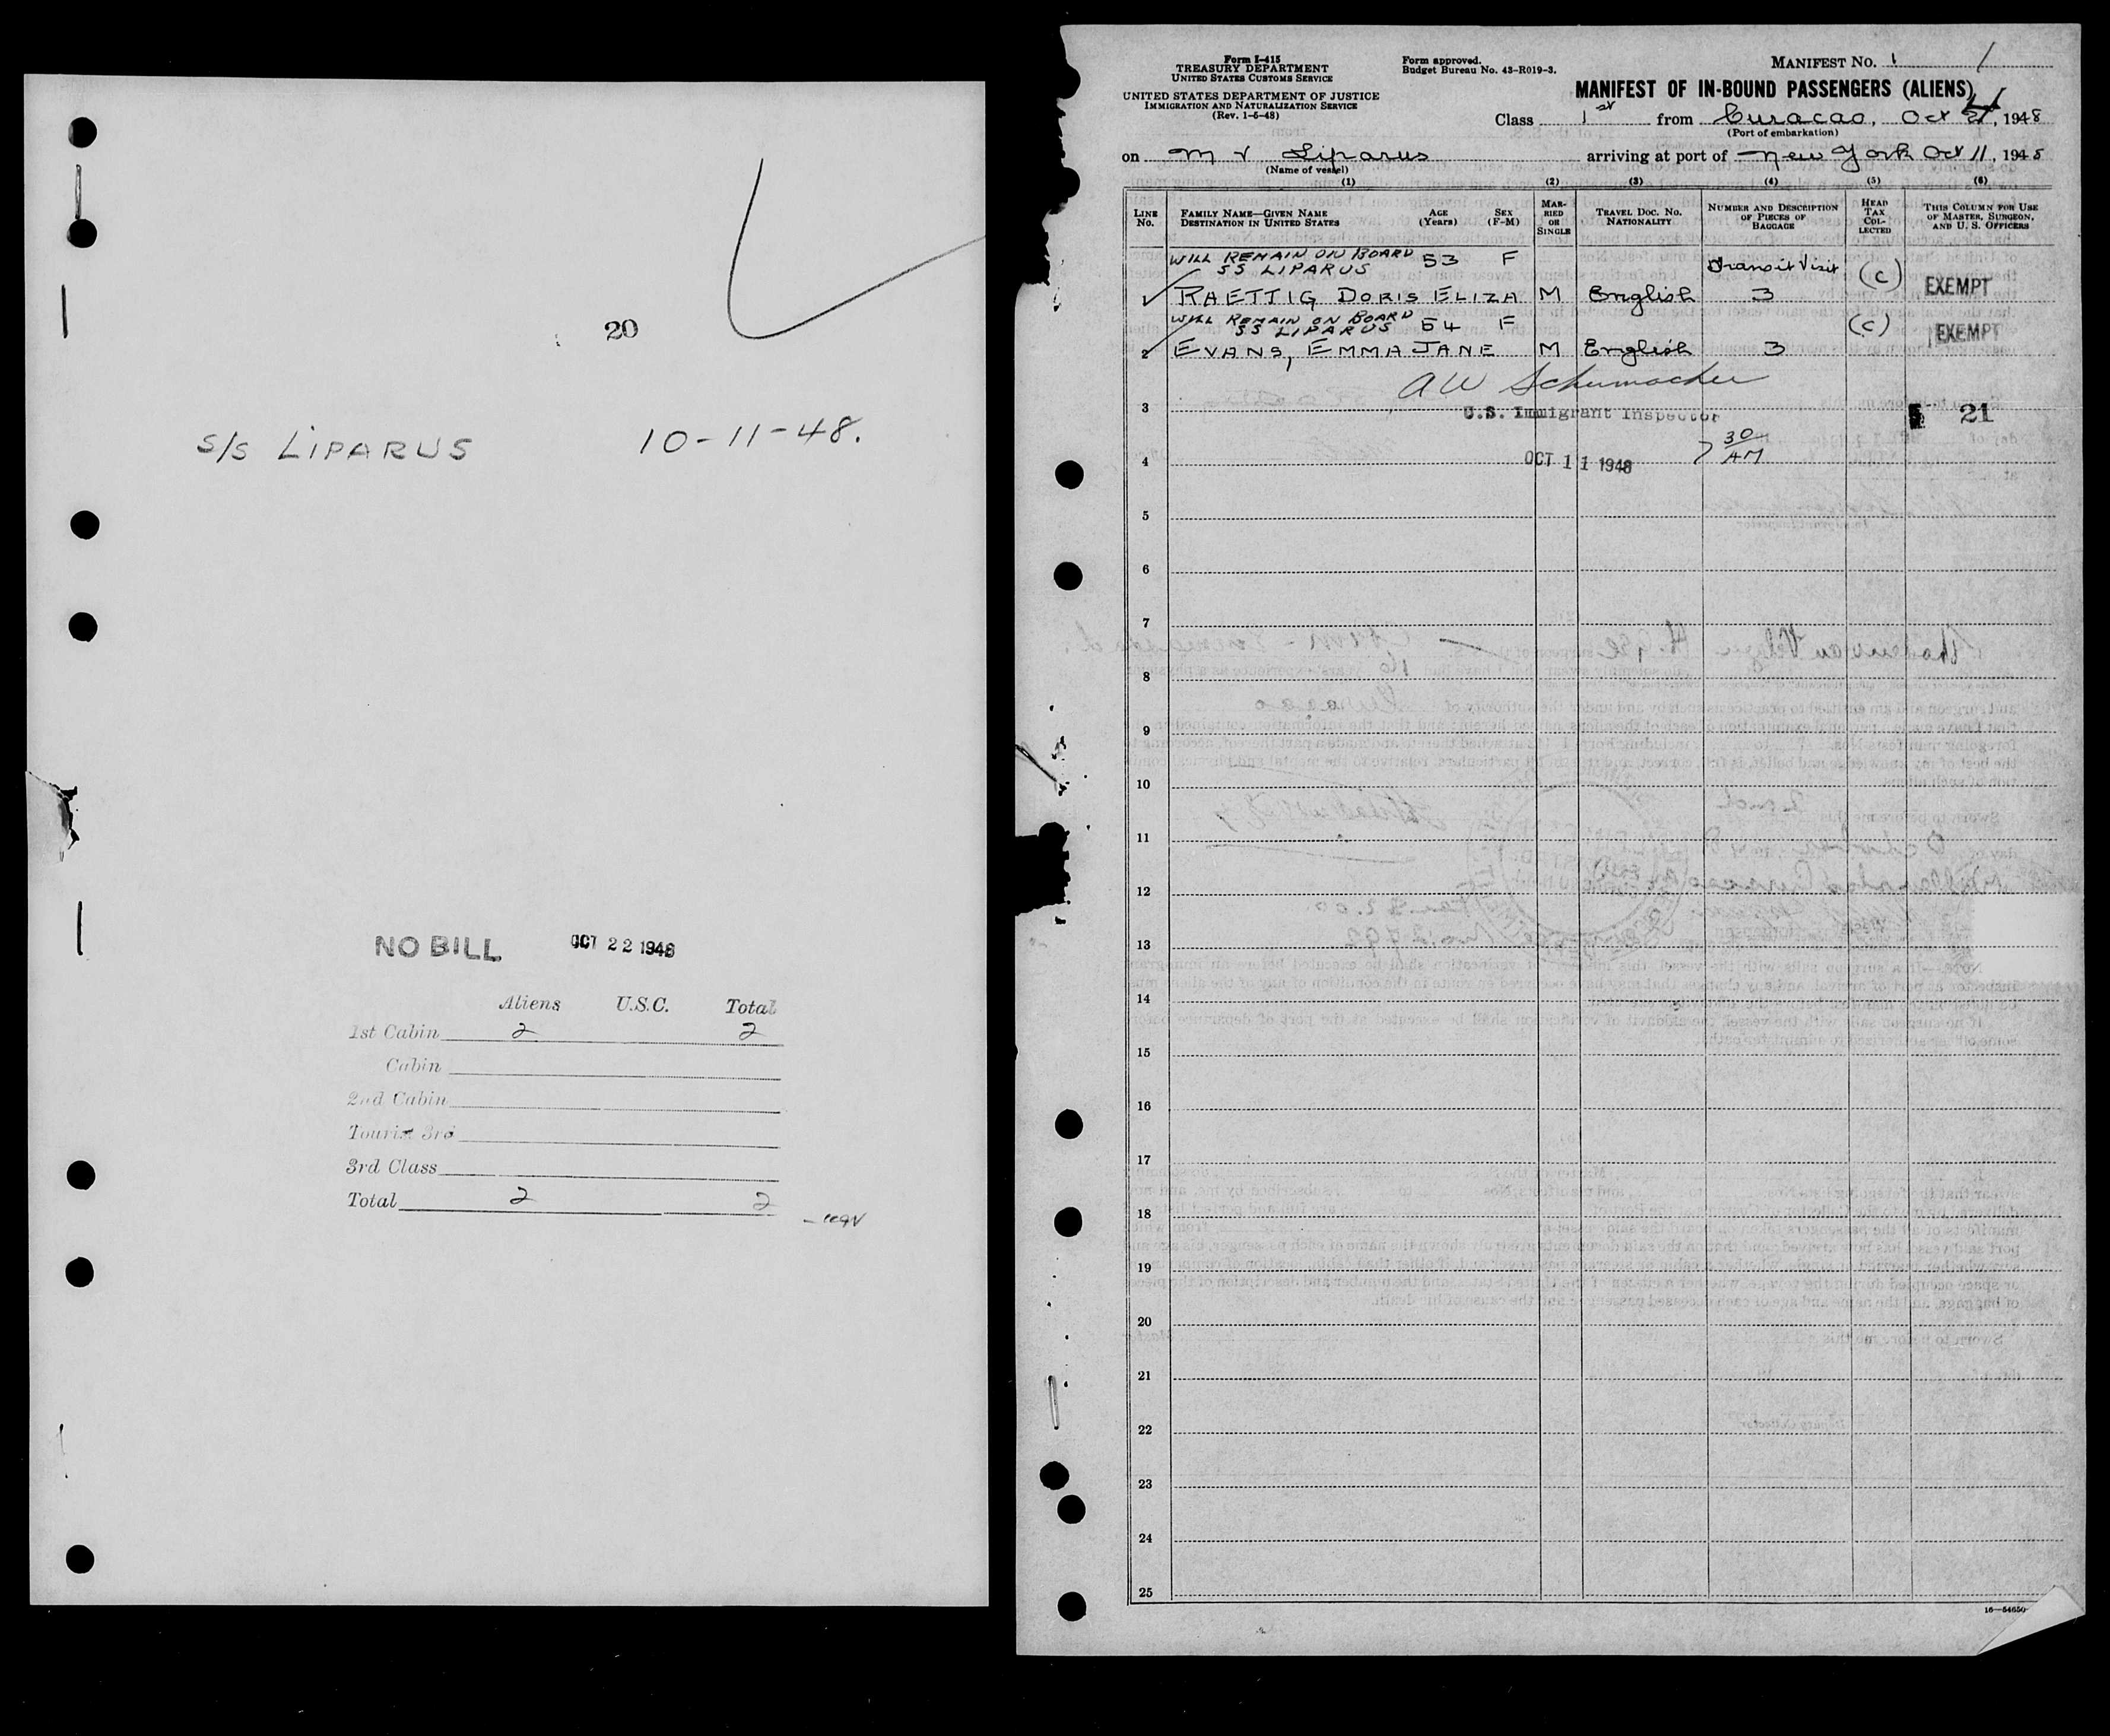 20
S/S LIPARUS 10-11-48.
NO BILL OCT 22 1948
Aliens U.S.C. Total
1st Cabin 2 2
Cabin
2nd Cabin
Tourist 3rd
3rd Class
Total 2 2
Form I-415
TREASURY DEPARTMENT
UNITED STATES CUSTOMS SERVICE
UNITED STATES DEPARTMENT OF JUSTICE
IMMIGRATION AND NATURALIZATION SERVICE
(Rev. 1-6-48)
Form approved.
Budget Bureau No. 43-R019-3.
MANIFEST No. 1 1
MANIFEST OF IN-BOUND PASSENGERS (ALIENS)
Class 1st from Curacao, Oct 4, 1948
(Port of embarkation)
on M V Liparus arriving at port of New York Oct 11, 1948
(Name of vessel)
(1) (2) (3) (4) (5) (6)
LINE No.
FAMILY NAME—GIVEN NAME
DESTINATION IN UNITED STATES
AGE (Years)
SEX (F-M)
MARRIED OR SINGLE
TRAVEL DOC. NO.
NATIONALITY
NUMBER AND DESCRIPTION OF PIECES OF BAGGAGE
HEAD TAX COLLECTED
THIS COLUMN FOR USE OF MASTER, SURGEON, AND U. S. OFFICERS
WILL REMAIN ON BOARD
SS LIPARUS 53 F Transit Visit (C) EXEMPT
1 RAETTIG DORIS ELIZA M English 3
WILL REMAIN ON BOARD
SS LIPARUS 54 F (C) EXEMPT
2 EVANS, EMMA JANE M English 3
A W Schumacher
3 U.S. Immigrant Inspector 21
4 OCT 11 1948 7 30 AM
5
6
7
8
9
10
11
12
13
14
15
16
17
18
19
20
21
22
23
24
25
16—54650